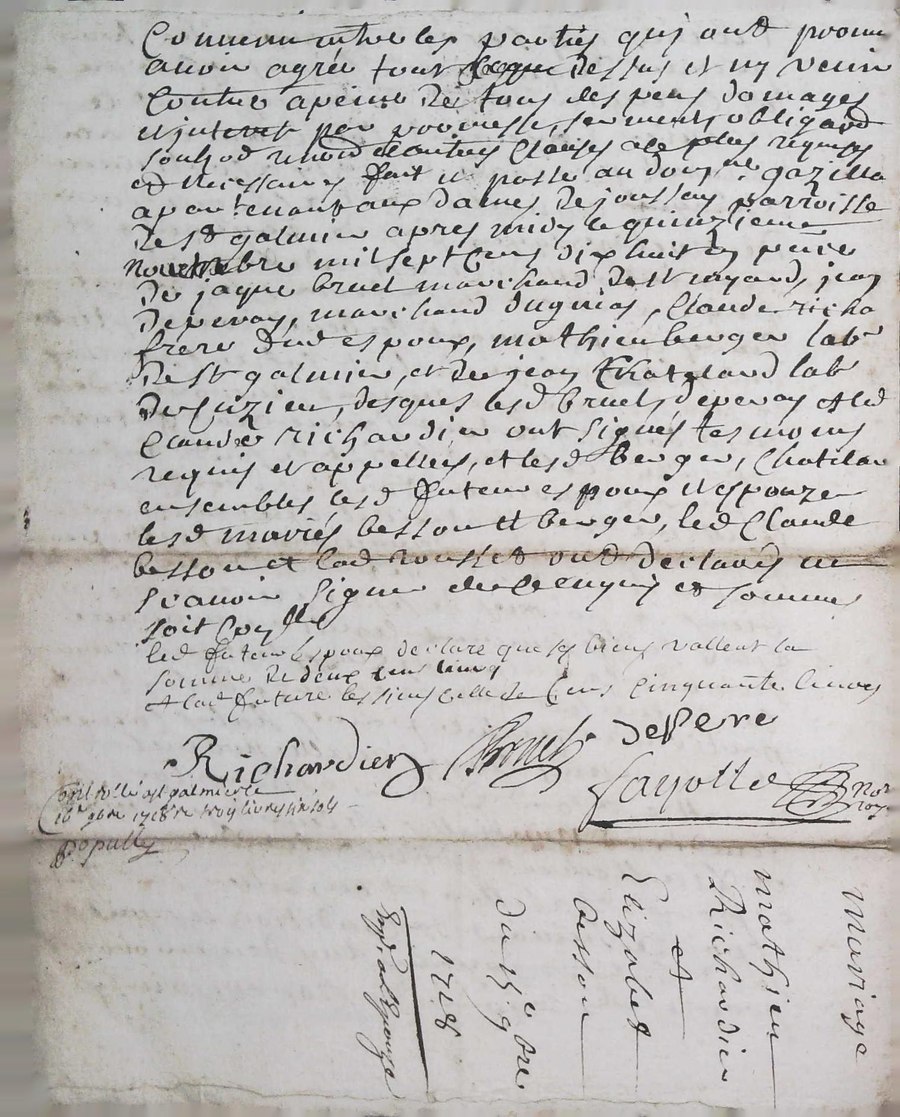 Convenu entre les parties quj ont promis
avoir agréé tout Ceque dessus et ny venir
Contre apeine de tous despens domages
et interest par promesse, serments, obligaõns
soub๐ et renõns dautres Clauses ale plus requises
et necessaires fait et passé au domne gazilla
apartenant aux dames de joursey parroisse
de st galmier apres midy le quinzieme
novembre mil sept Cens dix huit en pñce
de jaque bruel marchand de st , jean
deperey, marchand dugriays, Claude richa
frere dud espoux, mathieu berger labr
de st galmier, et de jean Chateland labr
de Cuzieu, desquels lesd bruel, deperey et led
Claude richardier ont signés tesmoins
requis et appellés, et lesd berger, Chatelan
ensembles lesd futeur espoux et espouze
lesd mariés besson et berger, led Claude
besson et lad rousset ont declarés ne
scavoir signer de ce enquis et sommés
soit Con
led futeur Espoux declare que ses biens vallent la
somme de deux Cens livres
et lad future les siens Celle de Cens Cinquante livres
Richardier Bruel dePere
fayolle Nore roy.
Conll st galmier le
16e 9bre 1718 re troy livres six sols
popull
Mariage
Mathieu
Richardier
et
Elizabet
besson
du 15e 9bre
1718
Expé a l'Epouze